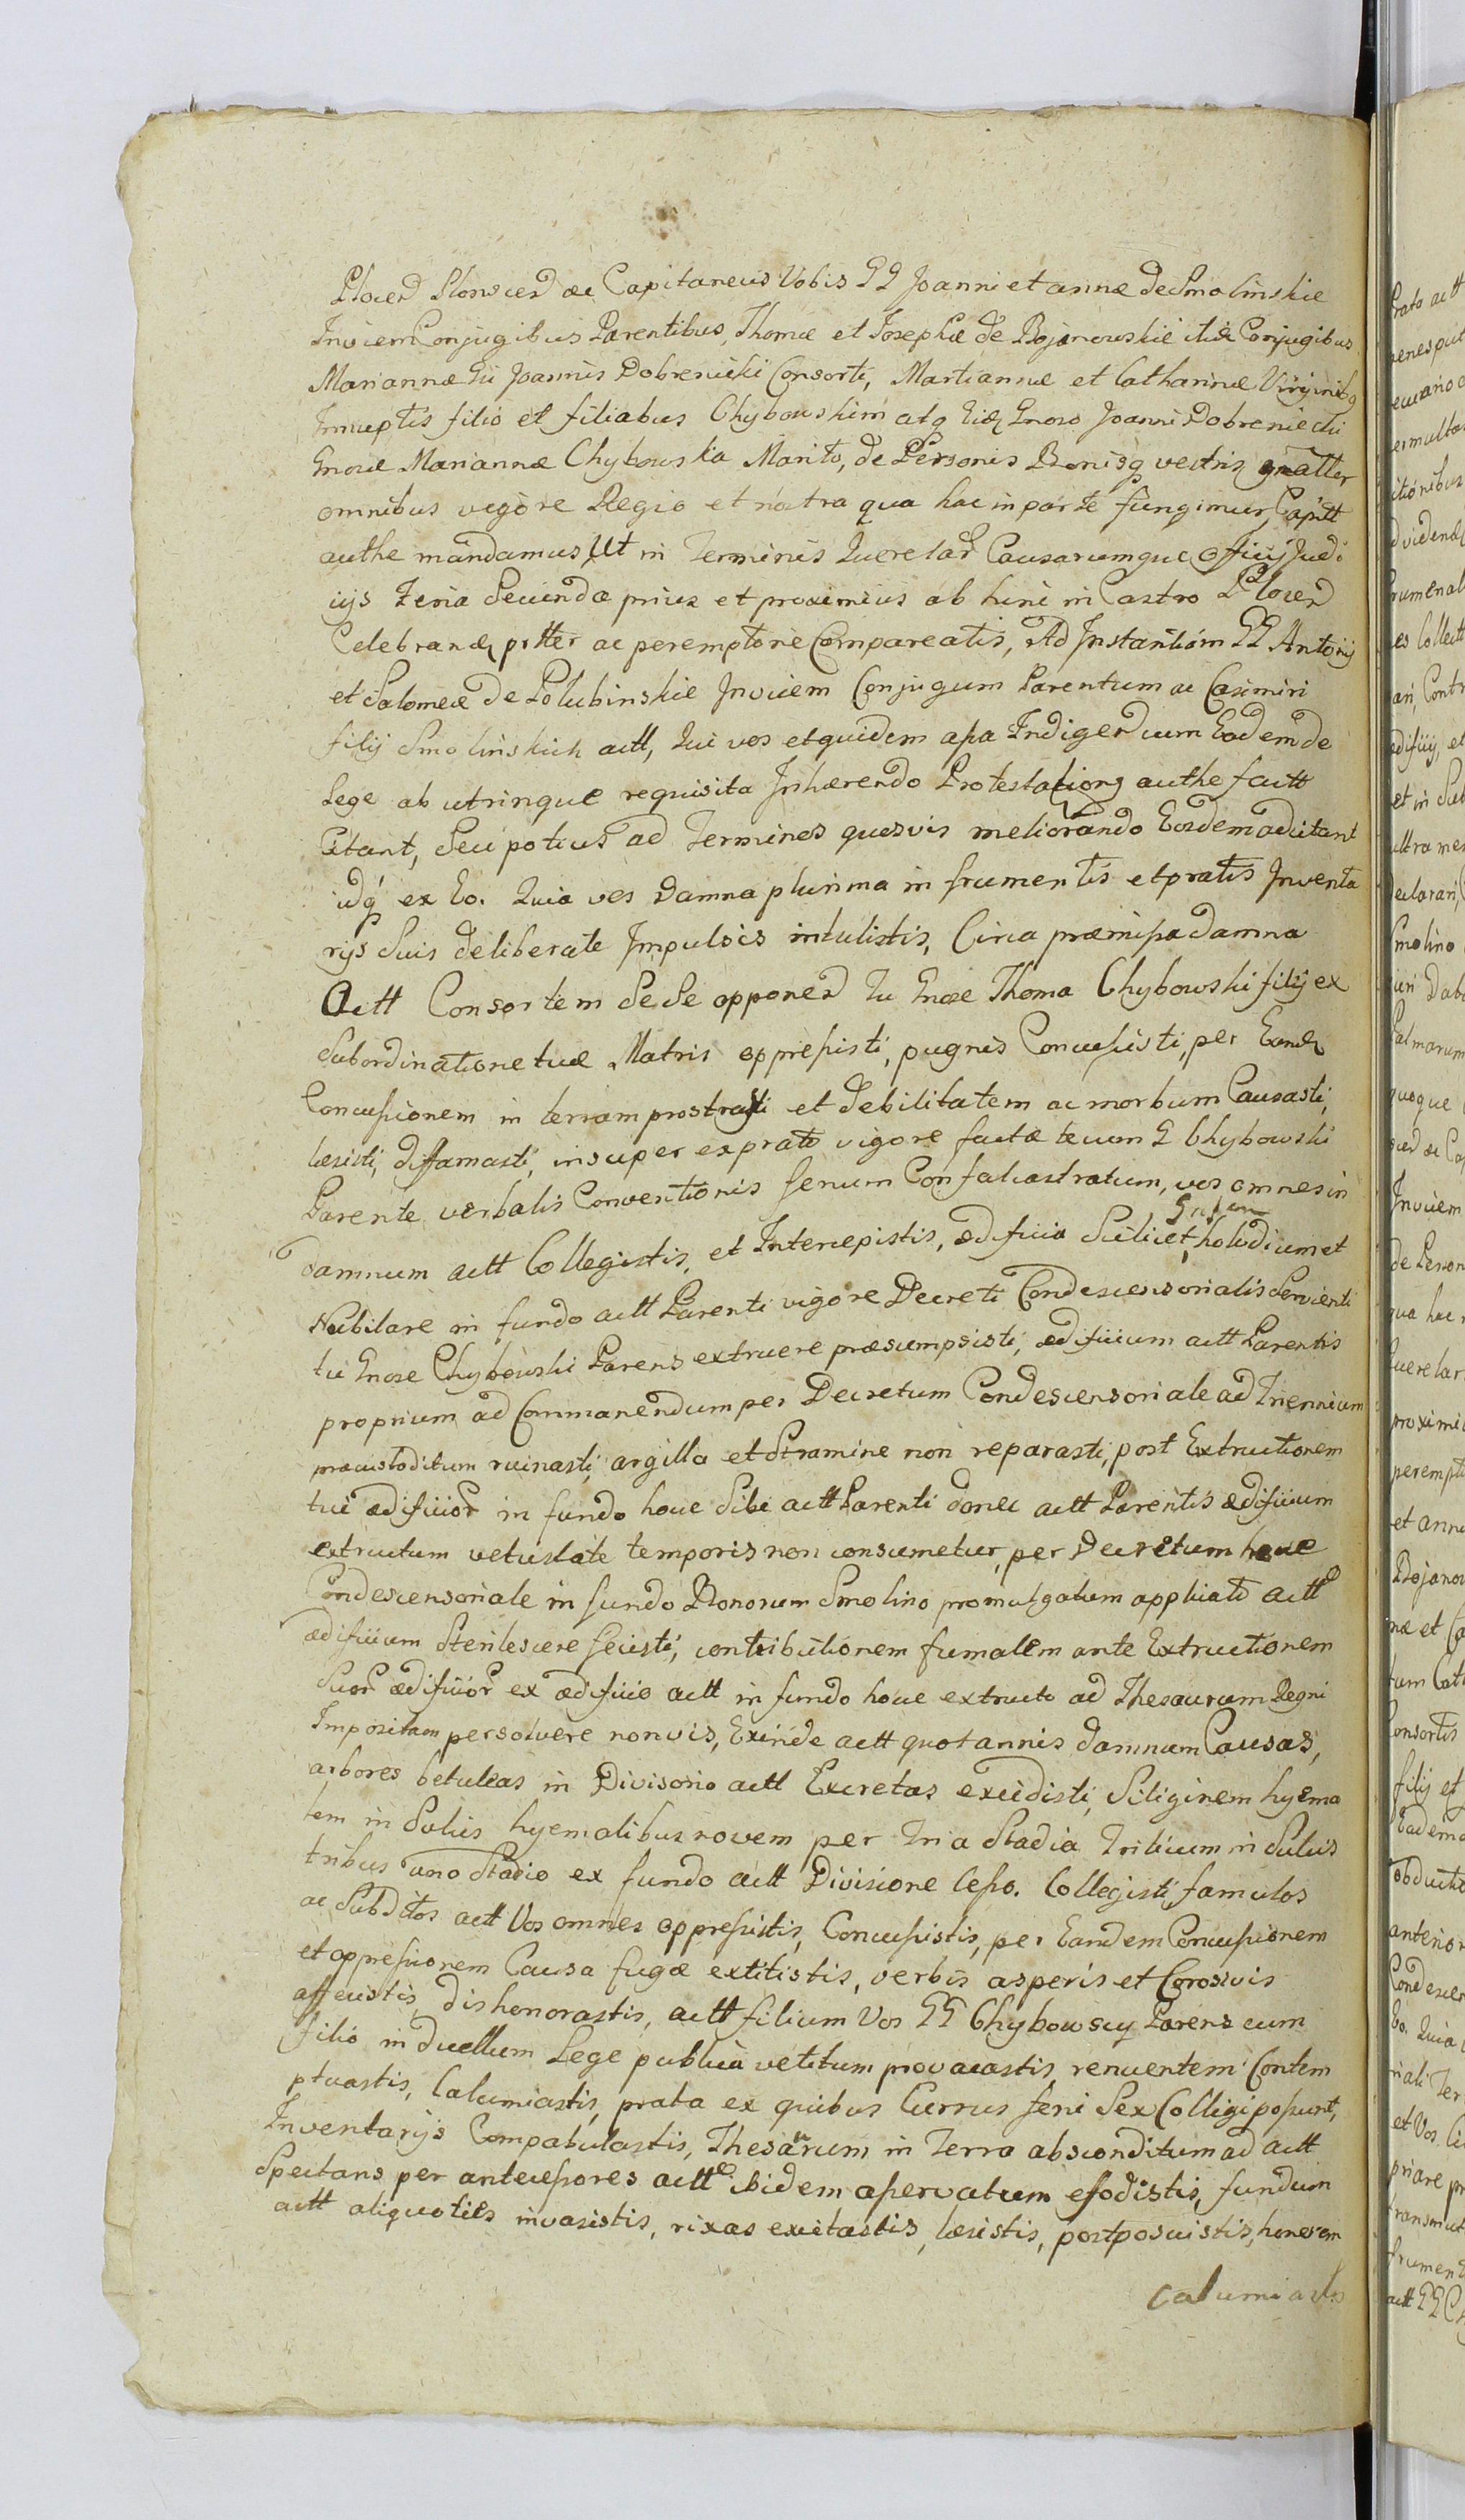 Plocen Plonscen ac Capitaneus Vobis GG Joanni et annæ de Smolinskie
Invicem Conjugibus Parentibus, Thomæ et Josephæ de Bojanowskie itid Conjugibus
Mariannæ Gsi Joannis Dobrenicki Consorti, Martiannæ et Catharinæ Virginibq
Innuptis filio et filiabus Chybowskim atq Eid Gnoso Joanni Dobreniecki
Gnosæ Mariannæ Chybowska Marito, de Personis Bonisq vestris gnalter
omnibus vigore Regia et nostra qua hac in parte fungimur, Capitt
authe mandamus Ut in Terminis Querelar Causarumque Officij Judi
cijs Feria Secunda prius et proximius ab hinc in Castro Plocen
Celebrand, pntter ac peremptorie Compareatis, Ad Instantiam GG Antonij
et Salomeæ de Polubinskie Invicem Conjugum Parentum ac Casimiri
filij Smolinskich actt, Qui vos et quidem apa Indigen cum Eadem de
Lege ab utrinque requisita Inhærendo Protestationq authe factt
Citant, Seu potius ad Terminos quosvis meliorando Eosdem adcitant
idq ex Eo. Quia vos Damna plurima in frumentis et pratis Inventa
rijs Suis deliberate Impulsis intulistis, Circa præmissa damna
Actt Consortem Se Se opponen Tu Gnose Thoma Chybowski filij ex
Subordinatione tuæ Matris oppressisti, pugnis Concussisti, per Eand
Concussionem in terram prostrasti et debilitatem ac morbum Causasti,
læsisti, diffamasti, insuper ex prato vigore factæ tecum G Chybowski
Parente verbalis Conventionis fenum Confalcastratum, vos omnes in
damnum actt Collegistis, et Intercepistis, ædificia Scilicet, holodium et
Nubilare in fundo actt Parenti vigore Decreti Condescensorialis Servienti
tu Gnose Chybowski Parens extruere præsumpsisti, ædificium actt Parentis
proprium ad Commanendum per Decretum Condescensoriale ad Triennium
præcustoditum ruinasti, argilla et Stramine non reparasti, post Extructionem
tui ædificior in fundo hocce Sibi actt Parenti donec actt Parentis ædificium
extructum vetustate temporis non consumetur, per Decretum hocce
Condescensoriale in fundo Bonorum Smolino promulgatum applicato actt
ædificium Sterilescere fecisti, contributionem fumalem ante Extructionem
Suor ædificior ex ædificio actt in fundo hocce extructo ad Thesaurum Regni
Impositam persolvere non vis, Exinde actt quotannis damnum Causas,
arbores betuleas in Divisorio actt Excretas excidisti, Siliginem hyema
lem in Sulcis hyemalibus novem per Tria Stadia Triticum in Sulcis
tribus uno Stadio ex fundo actt Divisione cesso. Collegisti famulos
ac Subditos actt Vos omnes oppressistis, Concussistis, per Eandem Concussionem
et oppressionem Causa fugæ extitistis, verbis asperis et Corosivis
affecistis dishonorastis, actt filium Vos GG Chybowscy Parens cum
filio in duellum Lege publica vetitum provocastis, renuentem Contem
ptuastis, Calumiastis, prata ex quibus Currus feni Sex Colligi possunt,
Inventarijs Compabulastis, Thesaurum in Terra absconditum ad actt
Spectans per antecessores actt ibidem aservatum efodistis, fundum
actt aliquoties invasistis, rixas excitastis, læsistis, postposuistis, honorem
calumiastis